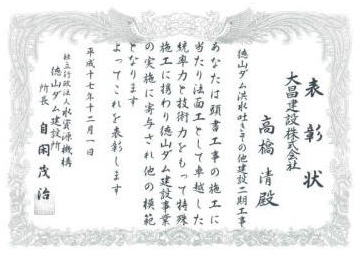 表彰状
大昌建設株式会社
高橋 清殿
徳山ダム洪水吐きその他建設二期工事
あなたは頭書工事の施工に
当たり法面工として卓越した
統率力と技術力をもって特殊
施工に携わり徳山ダム建設事業
の実施に寄与され他の模範
となります
よってこれを表彰します
平成十七年十二月一日
独立行政法人水資源機構
徳山ダム建設所
所長 自閑茂治